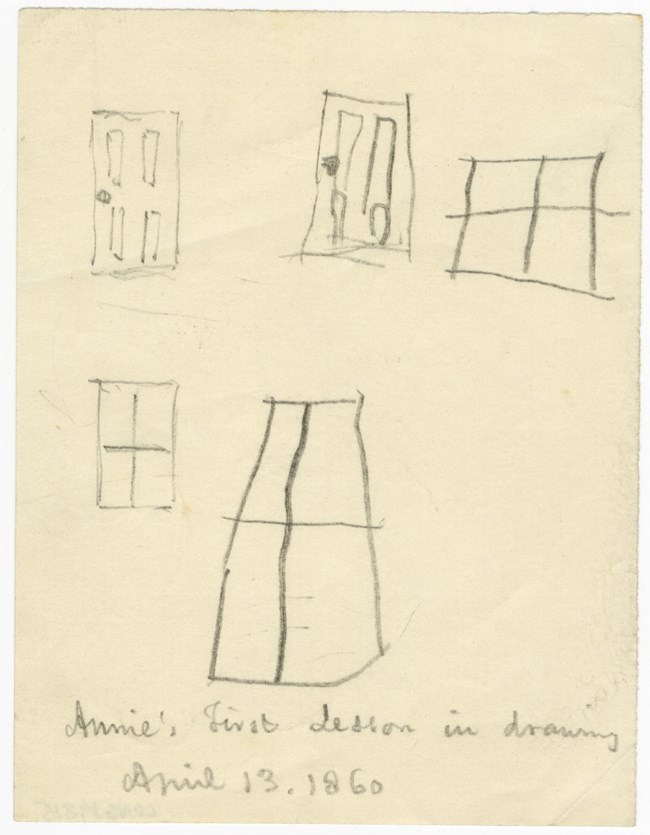 Annie's First Lesson in drawing
April 13. 1860